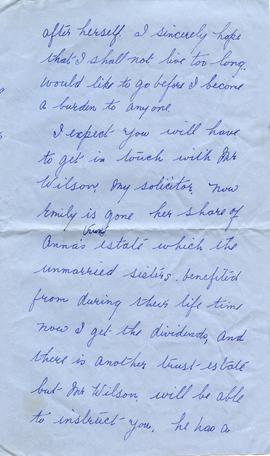 after herself. I sincerely hope
that I shall not live too long.
Would like to go before I become
a burden to anyone.
I expect you will have
to get in touch with Mr
Wilson, my solicitor. now
Emily is gone her share of
Anna's estate which the
unmarried sisters. benefited
from during their life time
now I get the dividends, and
there is another trust estate
but Mr Wilson, will be able
to instruct you. he has a